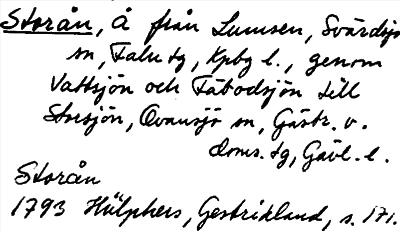 Storån, å från Lumsen, Svärdsjö
sn, Falu tg, Kpbg l., genom
Vattsjön och Fäbodsjön till
Storsjön, Ovansjö sn, Gästr. v.
doms. tg, Gävl. l.
Storån
1793 Hülphers, Gestrikland, s. 171.